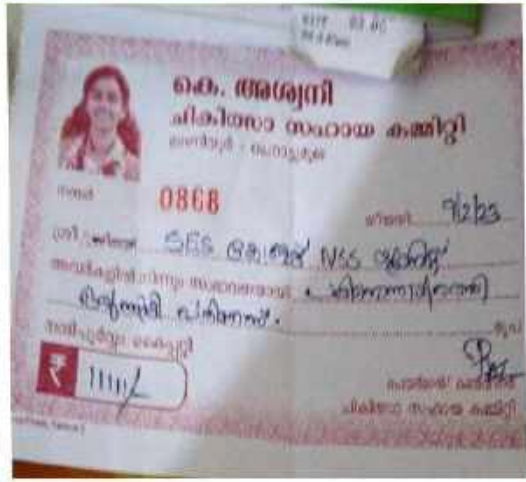 കെ. അശ്വനി
ചികിത്സാ സഹായ കമ്മിറ്റി
നമ്പർ 0868 തീയതി 9/2/23
ശ്രീ SES കോളേജ് NSS യൂണിറ്റ്
അവർകളിൽനിന്നും സംഭാവനയായി പതിനൊന്നായിരത്തി
ഒരുനൂറ്റി പതിനൊന്ന് രൂപ
നന്ദിപൂർവ്വം കൈപ്പറ്റി
₹ 11111/-
ചികിത്സാ സഹായ കമ്മിറ്റി